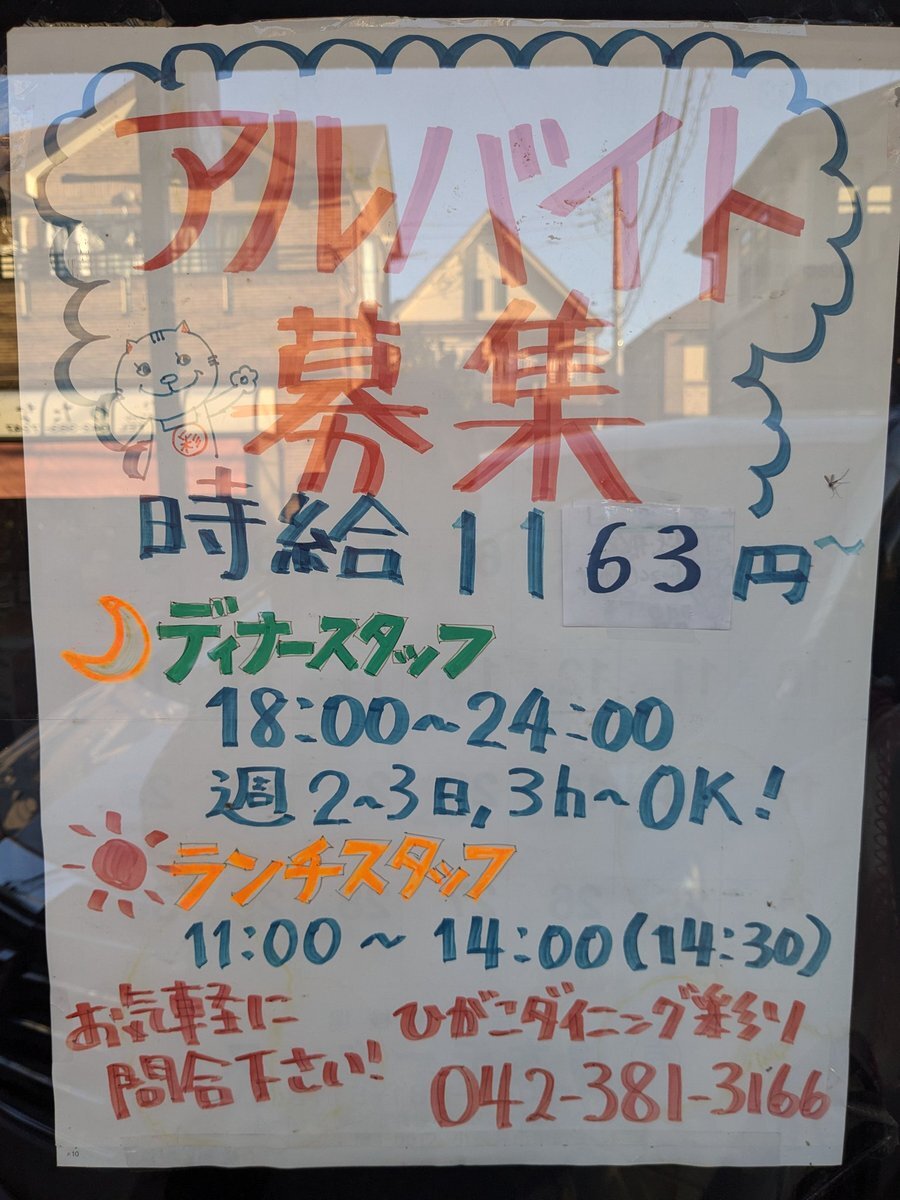 アルバイト
募集
彩
時給1163円~
ディナースタッフ
18:00~24:00
週2~3日,3h~OK!
ランチスタッフ
11:00~14:00(14:30)
お気軽に
問合下さい!
ひがこダイニング彩り
042-381-3166